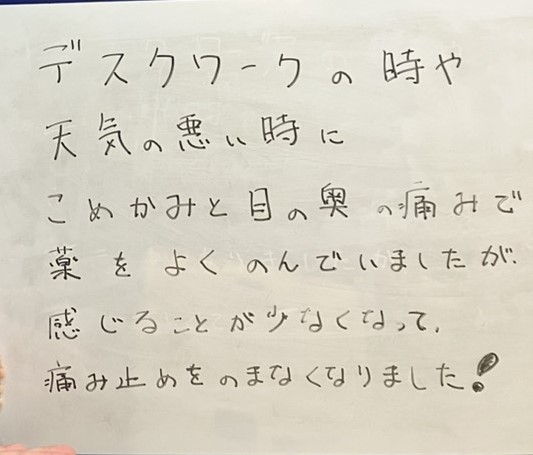 デスクワークの時や
天気の悪い時に
こめかみと目の奥の痛みで
薬をよくのんでいましたが、
感じることが少なくなって、
痛み止めをのまなくなりました!